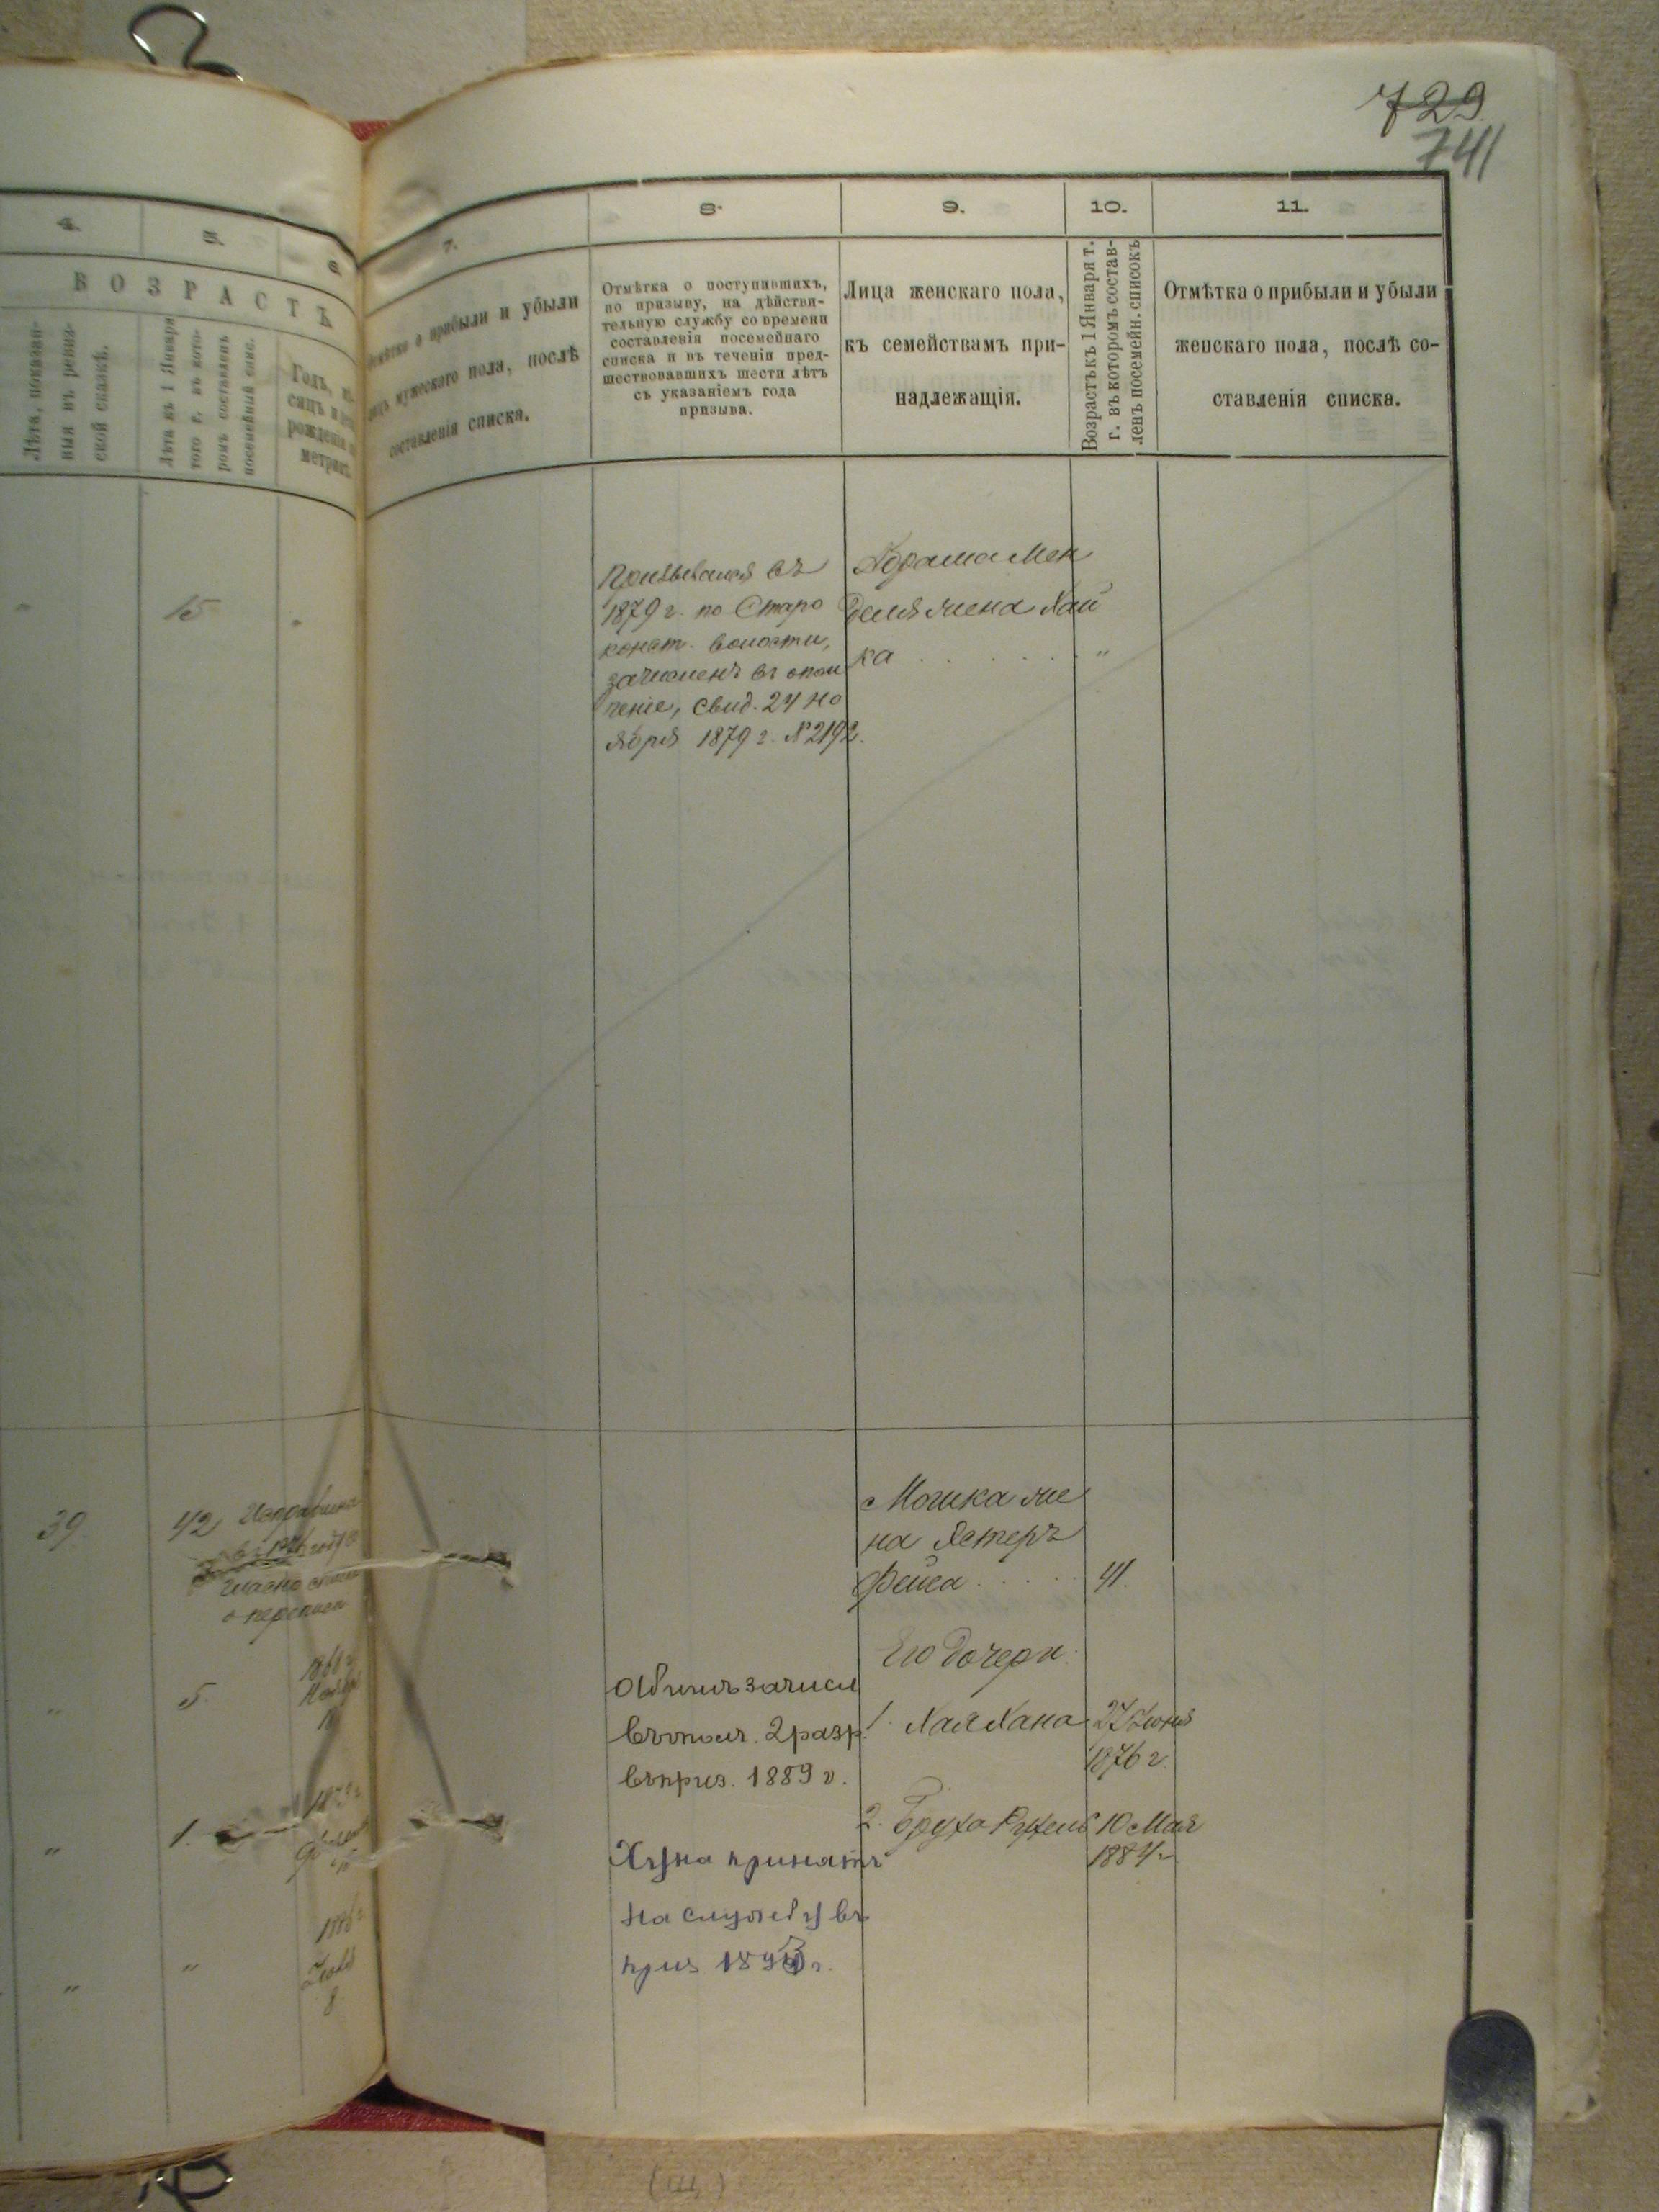 729
741
4.
5.
6.
7.
8.
9.
10.
11.
ВОЗРАСТЪ
Лѣта, показан-
ныя въ ревиз-
ской сказкѣ.
Лѣта къ 1 Января
того г. въ кото-
ромъ составленъ
посемейный спис.
Годъ, мѣ-
сяцъ и
рожденія
метрик.
о прибыли и убыли
лицъ мужескаго пола, послѣ
составленія списка.
Отмѣтка о поступившихъ,
по призыву, на дѣйстви-
тельную службу со времени
составленія посемейнаго
списка и въ теченіи пред-
шествовавшихъ шести лѣтъ
съ указаніемъ года
призыва.
Лица женскаго пола,
къ семействамъ при-
надлежащія.
Возрастъ къ 1 Января т.
г. въ которомъ состав-
ленъ посемейн. списокъ
Отмѣтка о прибыли и убыли
женскаго пола, послѣ со-
ставленія списка.
15
Призывался въ
1879 г. по Старо
конст. волости,
зачисленъ въ опол
ченіе, свид. 24 Но
ября 1879 г. № 2192.
Абрама Мен
деля жена Хай
ка "
39.
42
Исправлена
о переписи
Мошка же
на Эстеръ
Фейга 41.
Его дочери:
" 5.
Абрумъ зачисл
въ опол. 2 разр.
въ приз. 1889 г.
1. Хая Хана 27 Іюня
1876 г.
" 1.
2. Бруха Рухель 10 Мая
1884 г.
Хуна принятъ
на службу въ
приз 189 г.
" "
1886 г
8